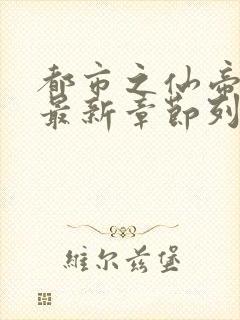 都市之仙帝
最新章節列
維尔兹堡